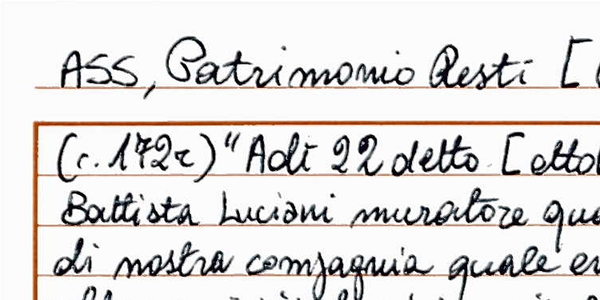 ASS, Patrimonio Resti [
(c. 172r) "Adì 22 detto [otto
Battista Luciani muratore qua
di nostra compagnia quale er